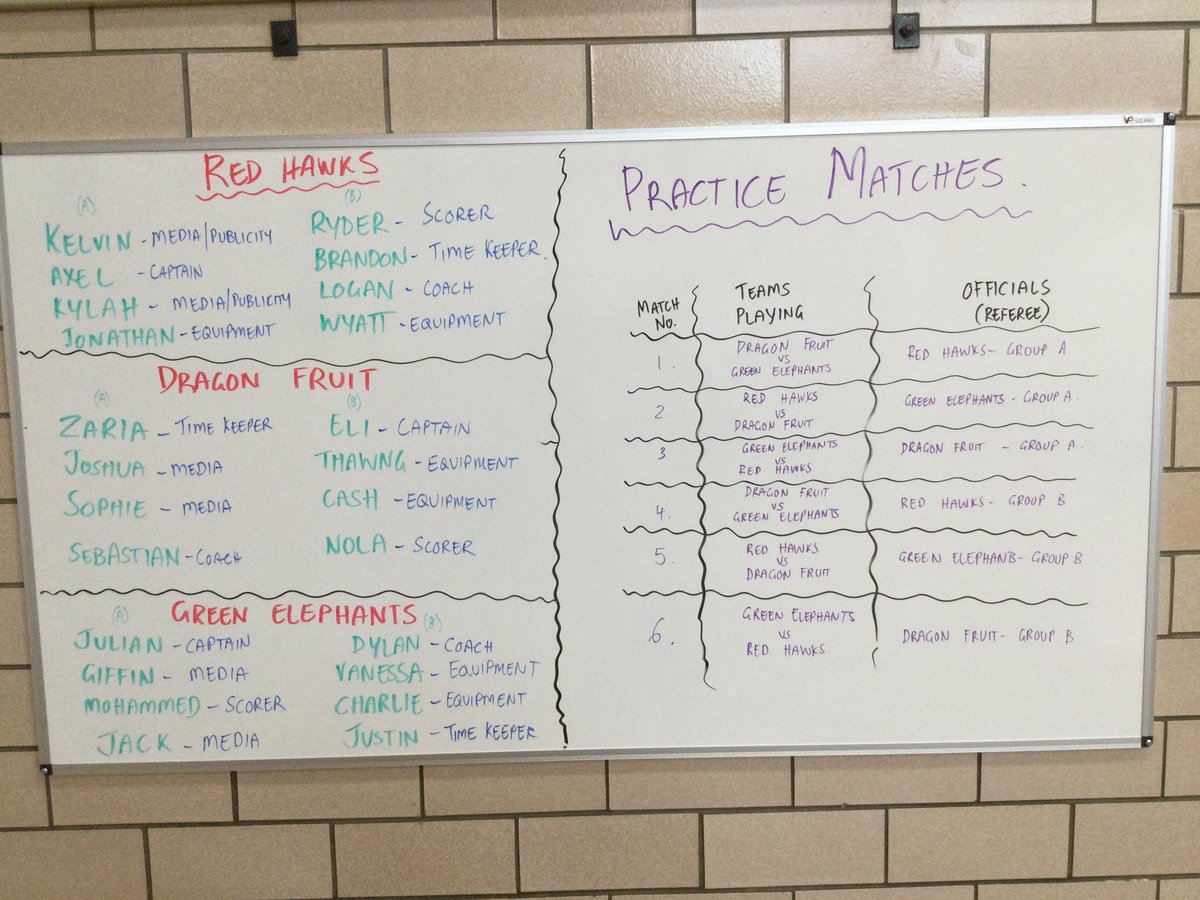 RED HAWKS
(A)
KELVIN - MEDIA/PUBLICITY
AXEL - CAPTAIN
KYLAH - MEDIA/PUBLICITY
JONATHAN - EQUIPMENT
(B)
RYDER - SCORER
BRANDON - TIME KEEPER.
LOGAN - COACH
WYATT - EQUIPMENT
DRAGON FRUIT
(A)
ZARIA - TIME KEEPER
JOSHUA - MEDIA
SOPHIE - MEDIA
SEBASTIAN - COACH
(B)
ELI - CAPTAIN
THAWNG - EQUIPMENT
CASH - EQUIPMENT
NOLA - SCORER
GREEN ELEPHANTS
(A)
JULIAN - CAPTAIN
GIFFIN - MEDIA
MOHAMMED - SCORER
JACK - MEDIA
(B)
DYLAN - COACH
VANESSA - EQUIPMENT
CHARLIE - EQUIPMENT
JUSTIN - TIME KEEPER
PRACTICE MATCHES.
MATCH NO.
TEAMS PLAYING
OFFICIALS (REFEREE)
1.
DRAGON FRUIT
VS
GREEN ELEPHANTS
RED HAWKS - GROUP A
2.
RED HAWKS
VS
DRAGON FRUIT
GREEN ELEPHANTS - GROUP A.
3
GREEN ELEPHANTS
VS
RED HAWKS
DRAGON FRUIT - GROUP A.
4.
DRAGON FRUIT
VS
GREEN ELEPHANTS
RED HAWKS - GROUP B
5.
RED HAWKS
VS
DRAGON FRUIT
GREEN ELEPHANTS - GROUP B
6.
GREEN ELEPHANTS
VS
RED HAWKS
DRAGON FRUIT - GROUP B